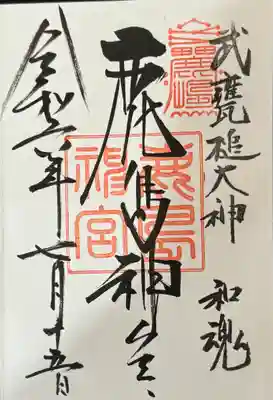 武甕槌大神 和魂
鹿島神宮
鹿島
神宮
令和六年七月十五日